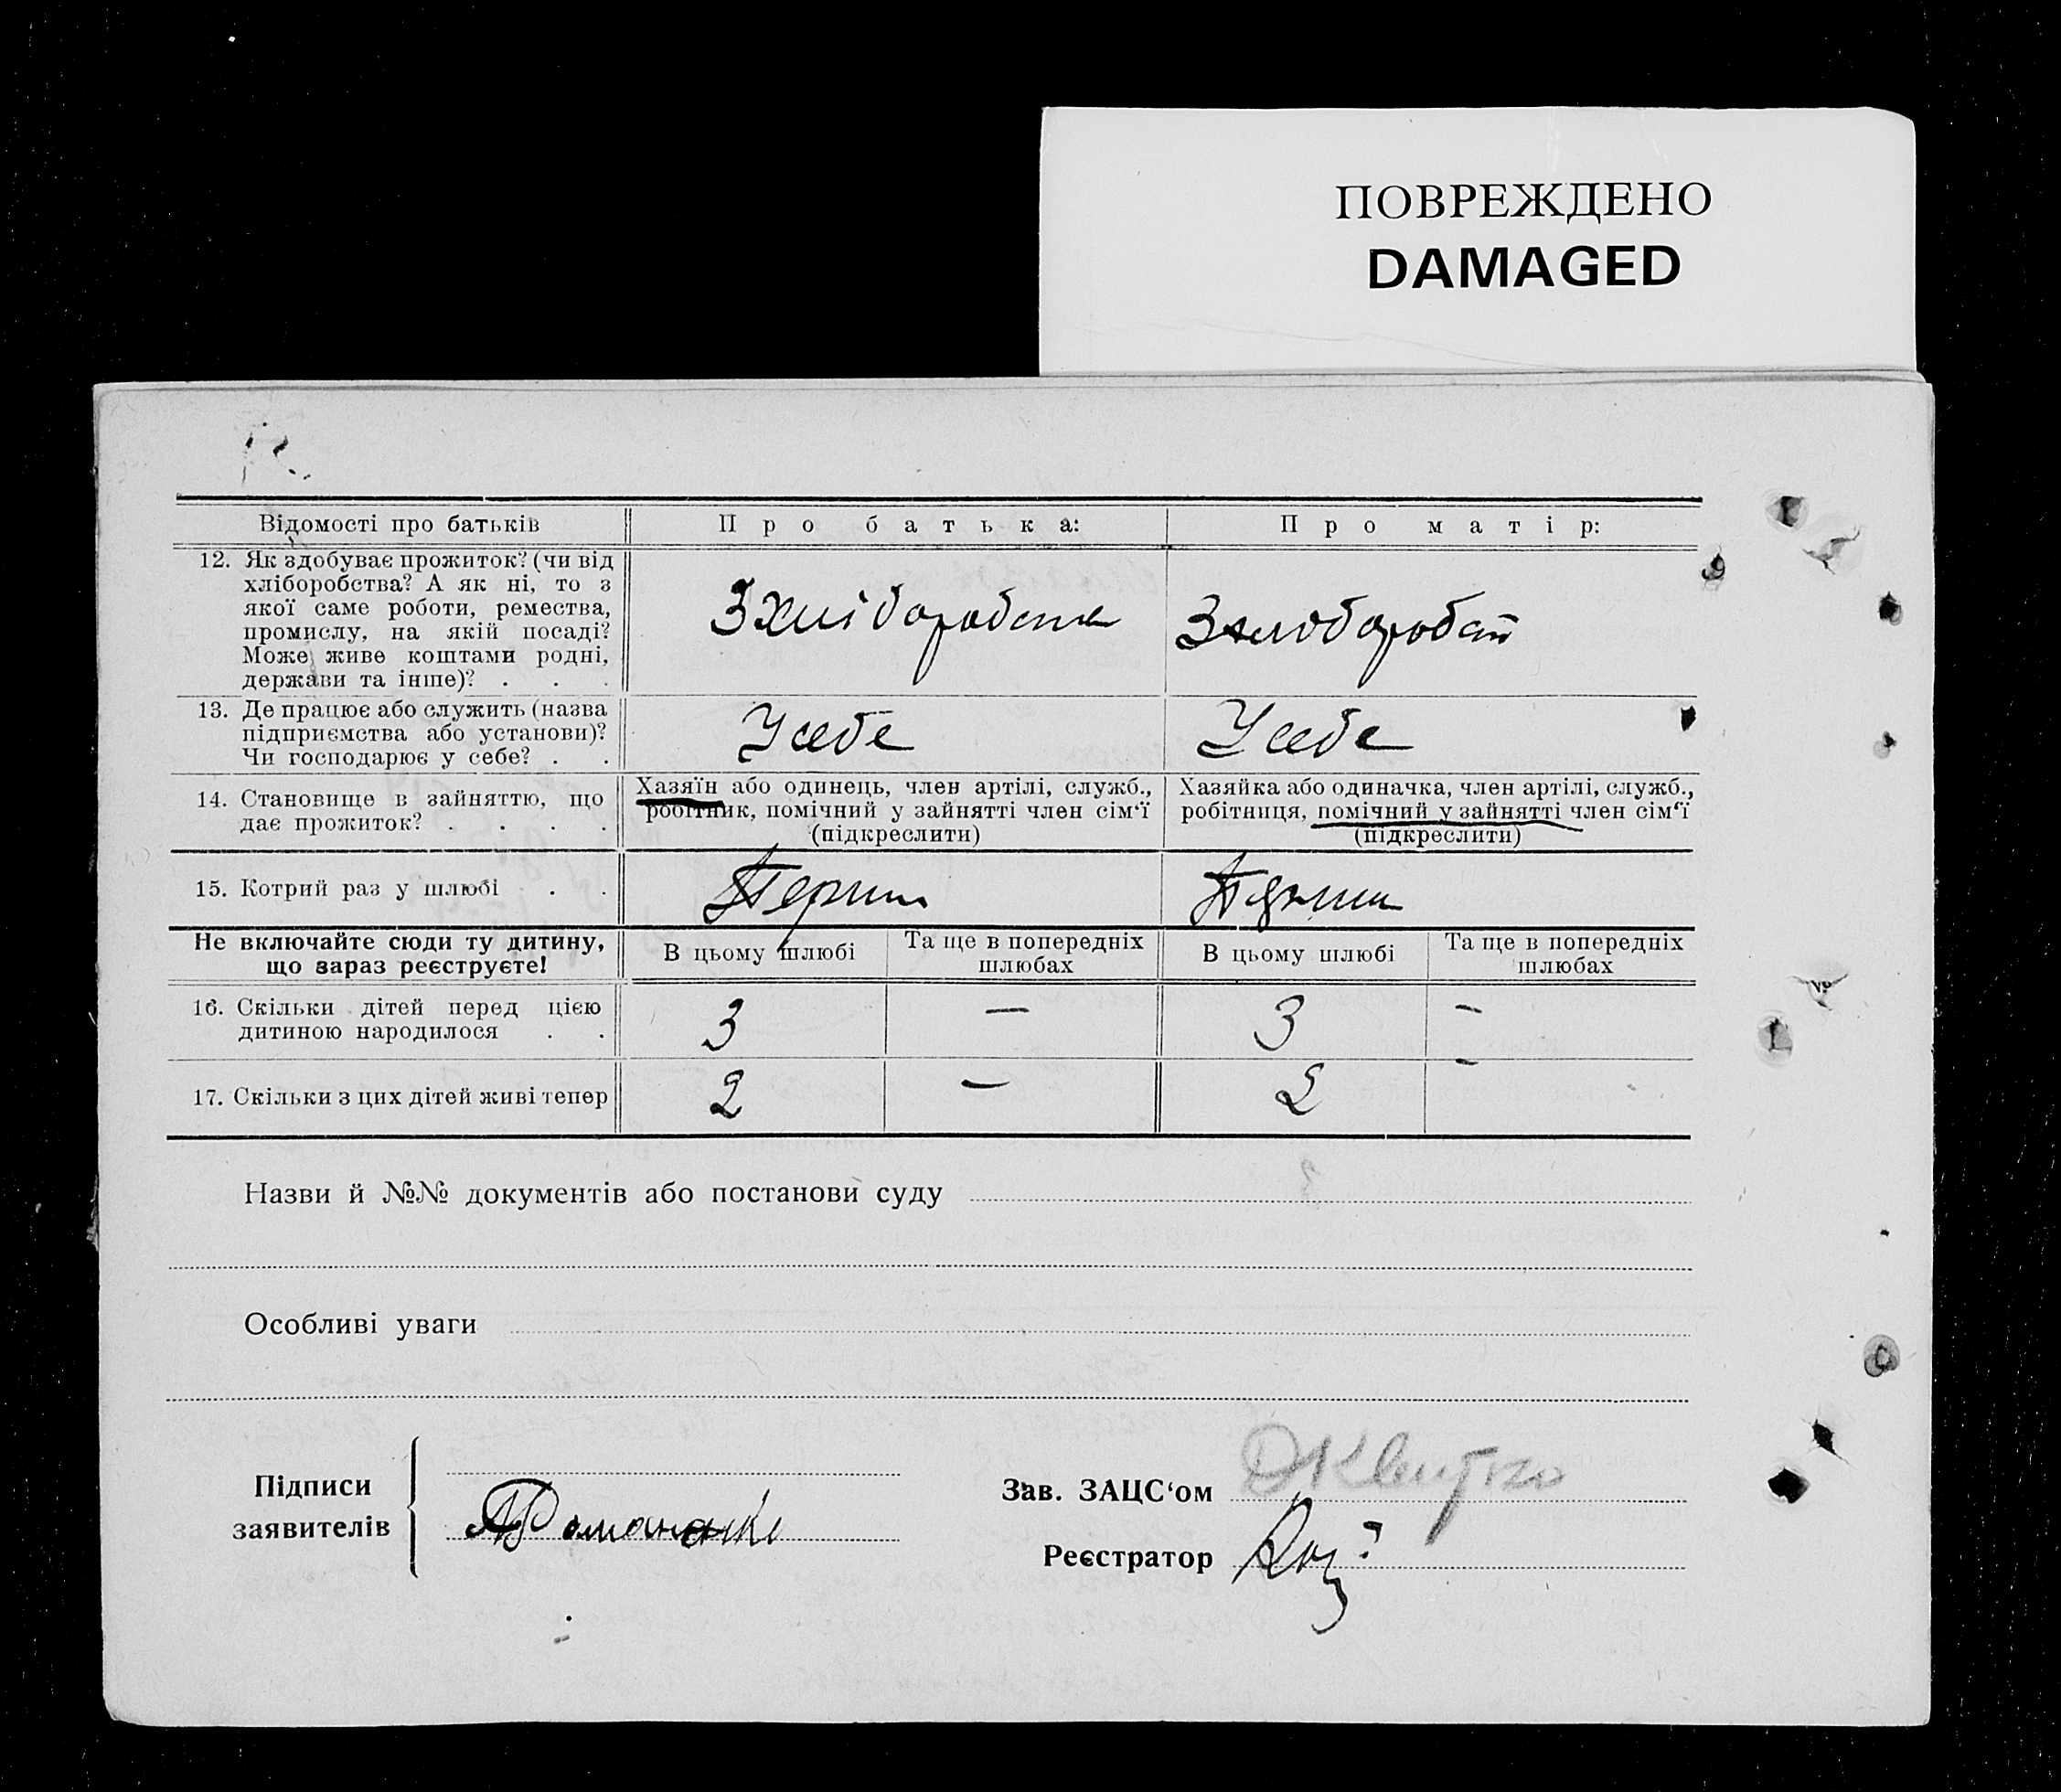 ПОВРЕЖДЕНО
DAMAGED
Відомості про батьків
Про батька:
Про матір:
12. Як здобуває прожиток? (чи від
хліборобства? А як ні, то з
якої саме роботи, ремества,
промислу, на якій посаді?
Може живе коштами родні,
держави та інше)? . . .
З хліборобства
З хліборобст
13. Де працює або служить (назва
підприємства або установи)?
Чи господарює у себе? . .
У себе
У себе
14. Становище в зайняттю, що
дає прожиток? . . . .
Хазяїн або одинець, член артілі, служб.,
робітник, помічний у зайнятті член сім‘ї
(підкреслити)
Хазяйка або одиначка, член артілі, служб.,
робітниця, помічний у зайнятті член сім‘ї
(підкреслити)
15. Котрий раз у шлюбі . .
Перший
Перший
Не включайте сюди ту дитину,
що зараз реєструєте!
В цьому шлюбі
Та ще в попередніх
шлюбах
В цьому шлюбі
Та ще в попередніх
шлюбах
16. Скільки дітей перед цією
дитиною народилося . .
3 — 3 —
17. Скільки з цих дітей живі тепер
2 — 2 —
Назви й №№ документів або постанови суду
Особливі уваги
Підписи
заявителів
Романенко
Зав. ЗАЦС‘ом
Реєстратор